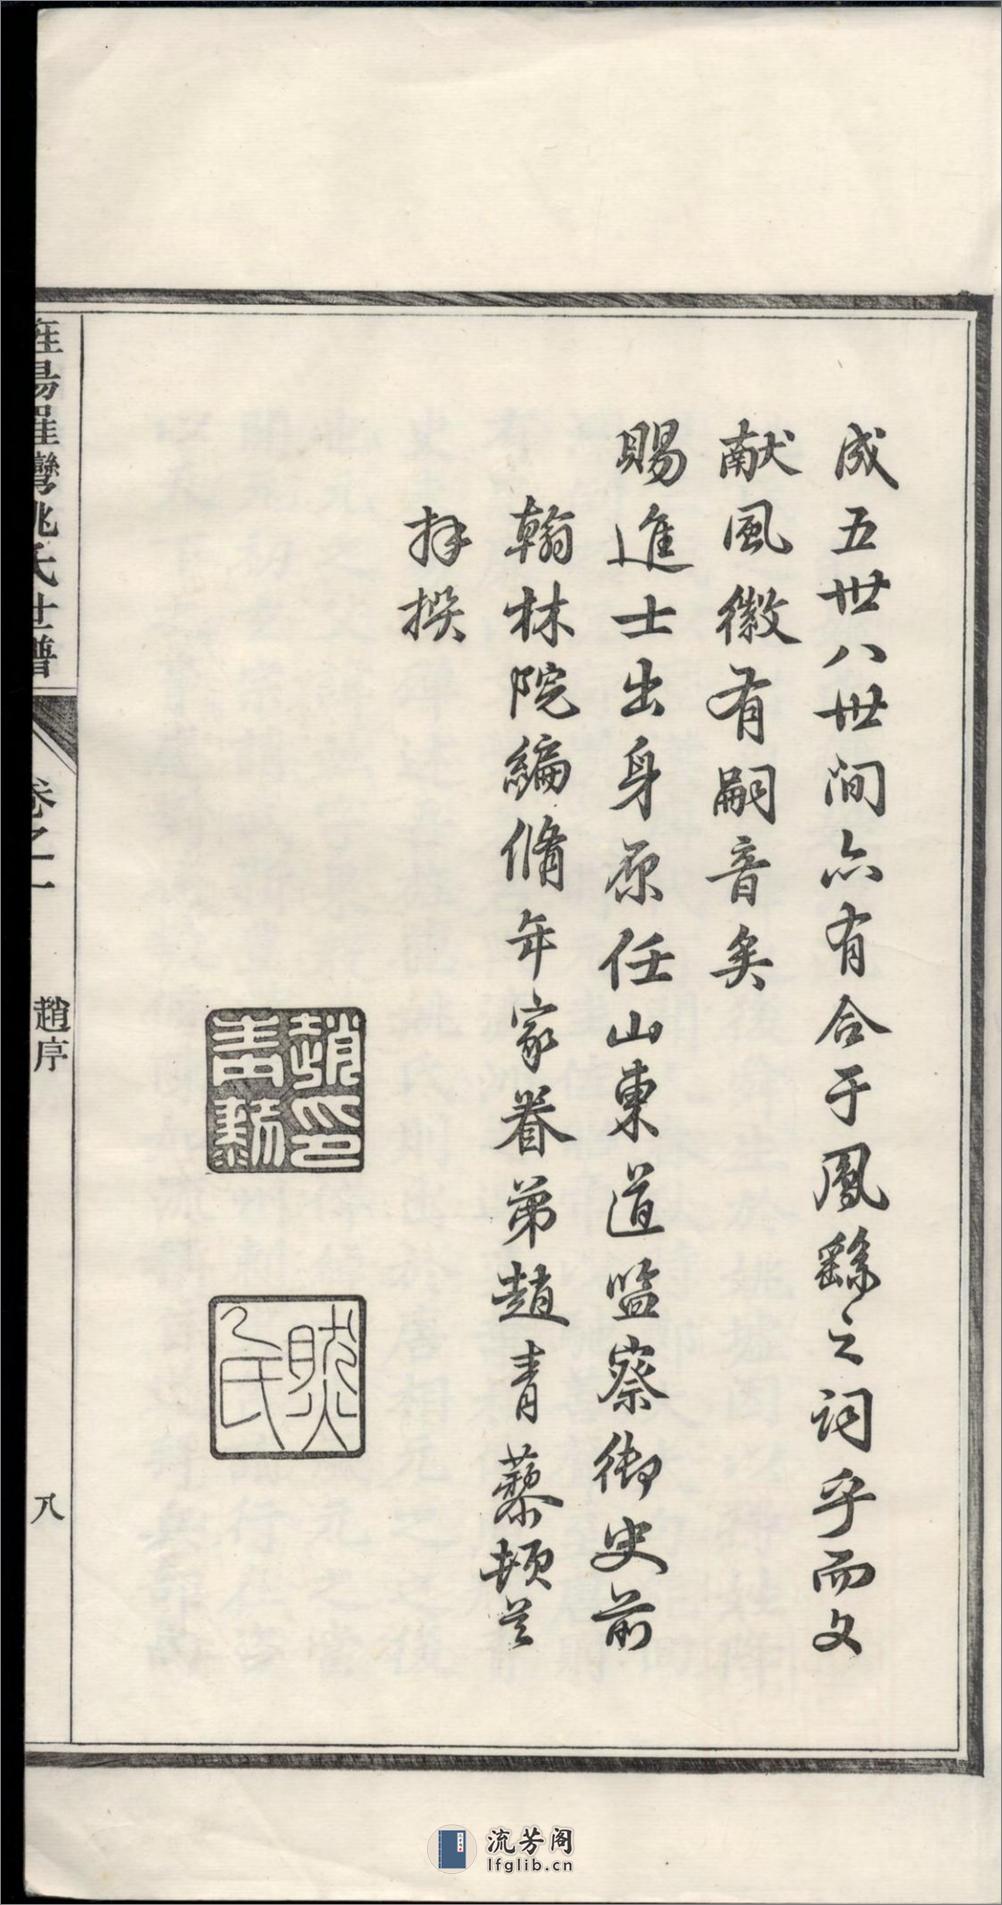 成五世八世间亦有合于鳳繇之词乎而文
献風徽有嗣音矣
賜進士出身原任山東道监察御史前
翰林院編脩年家眷弟趙青藜頓首
拜撰
趙印青藜
然乙氏
旌陽羅灣姚氏世譜
卷之一
趙序
八
流芳阁
lfglib.cn